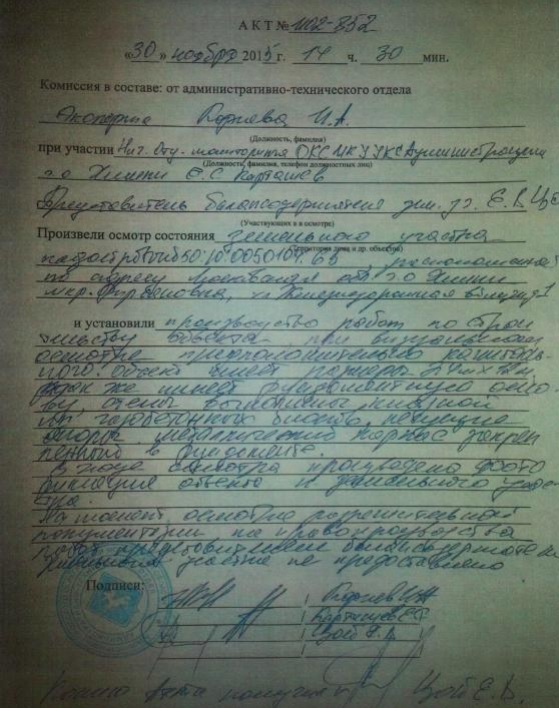 АКТ № 402-852
«30» ноября 2015 г. 14 ч. 30 мин.
Комиссия в составе: от административно-технического отдела
Эксперта Корнева И.А.
(Должность, фамилия)
при участии Нач. Отд. мониторинга ОКС МКУ УКС Администрации
(Должность, фамилия, телефон должностных лиц)
г.о Химки Е.С. Карташев
Представитель балансодержателя зем. уч. Е.В. Цой
(Участвующих в осмотре)
Произвели осмотр состояния земельного участка
(территория дома и др. объекты)
50:10:0050104:65
по адресу Московская обл г.о Химки
мкр. Фирсановка, ул Железнодорожная
и установили производство работ по строи
тельству объекта. при визуальном
осмотре предположительно капиталь
ного. объект имеет размеры
так же имеет фундаментную осно
ву, стены выполнены
из газобетонных блоков, несущие
опоры металлический каркас закреп
ленный в фундаменте.
В ходе осмотра произведена фото
фиксация объекта и земельного учас
тка.
На момент осмотра разрешительной
документации на право производства
работ представителем балансодержателя
земельного участка не предоставлено
Подписи:
Корнев И.А
Карташев Е.С
Цой Е.В
Копию акта получил Цой Е.В.